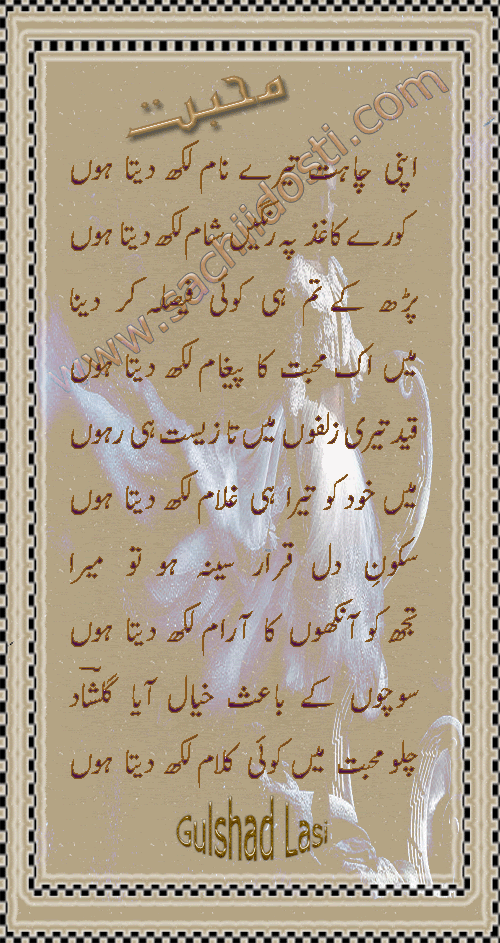 محبت
www.sachiidosti.com
اپنی چاہت تیرے نام لکھ دیتا ہوں
کورے کاغذ پہ رنگیں شام لکھ دیتا ہوں
پڑھ کے تم ہی کوئی فیصلہ کر دینا
میں اک محبت کا پیغام لکھ دیتا ہوں
قید تیری زلفوں میں تا زیست ہی رہوں
میں خود کو تیرا ہی غلام لکھ دیتا ہوں
سکونِ دل قرار سینہ ہو تو میرا
تجھ کو آنکھوں کا آرام لکھ دیتا ہوں
سوچوں کے باعث خیال آیا گلشاد
چلو محبت میں کوئی کلام لکھ دیتا ہوں
Gulshad Lasi